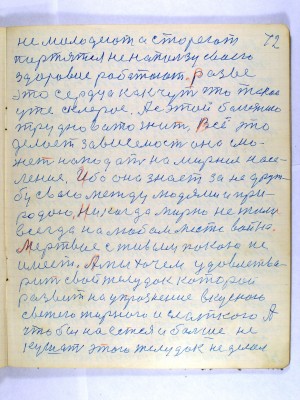 не молодеют а старегот 72
портятся не напользу своего
здоровие работают. Разве
это сердца как чут что такое
уже склероз. А с этой болезнию
трудновато жит, Всё это
делает зависемость она смо-
жет нападат на мирное насе-
ление. Ибо она знает за не друж-
бу свою между людями и при-
родою, Никогда мирно не жили
всегда на любом месте война.
Мертвые с живым покою не
имеет. А мы хочем удовлетво-
рит свой желудок которой
развит на упражнение вкусного
свежего жирного и сладкого А
чтобы наестся и больше не
кушат этого желудок не делал